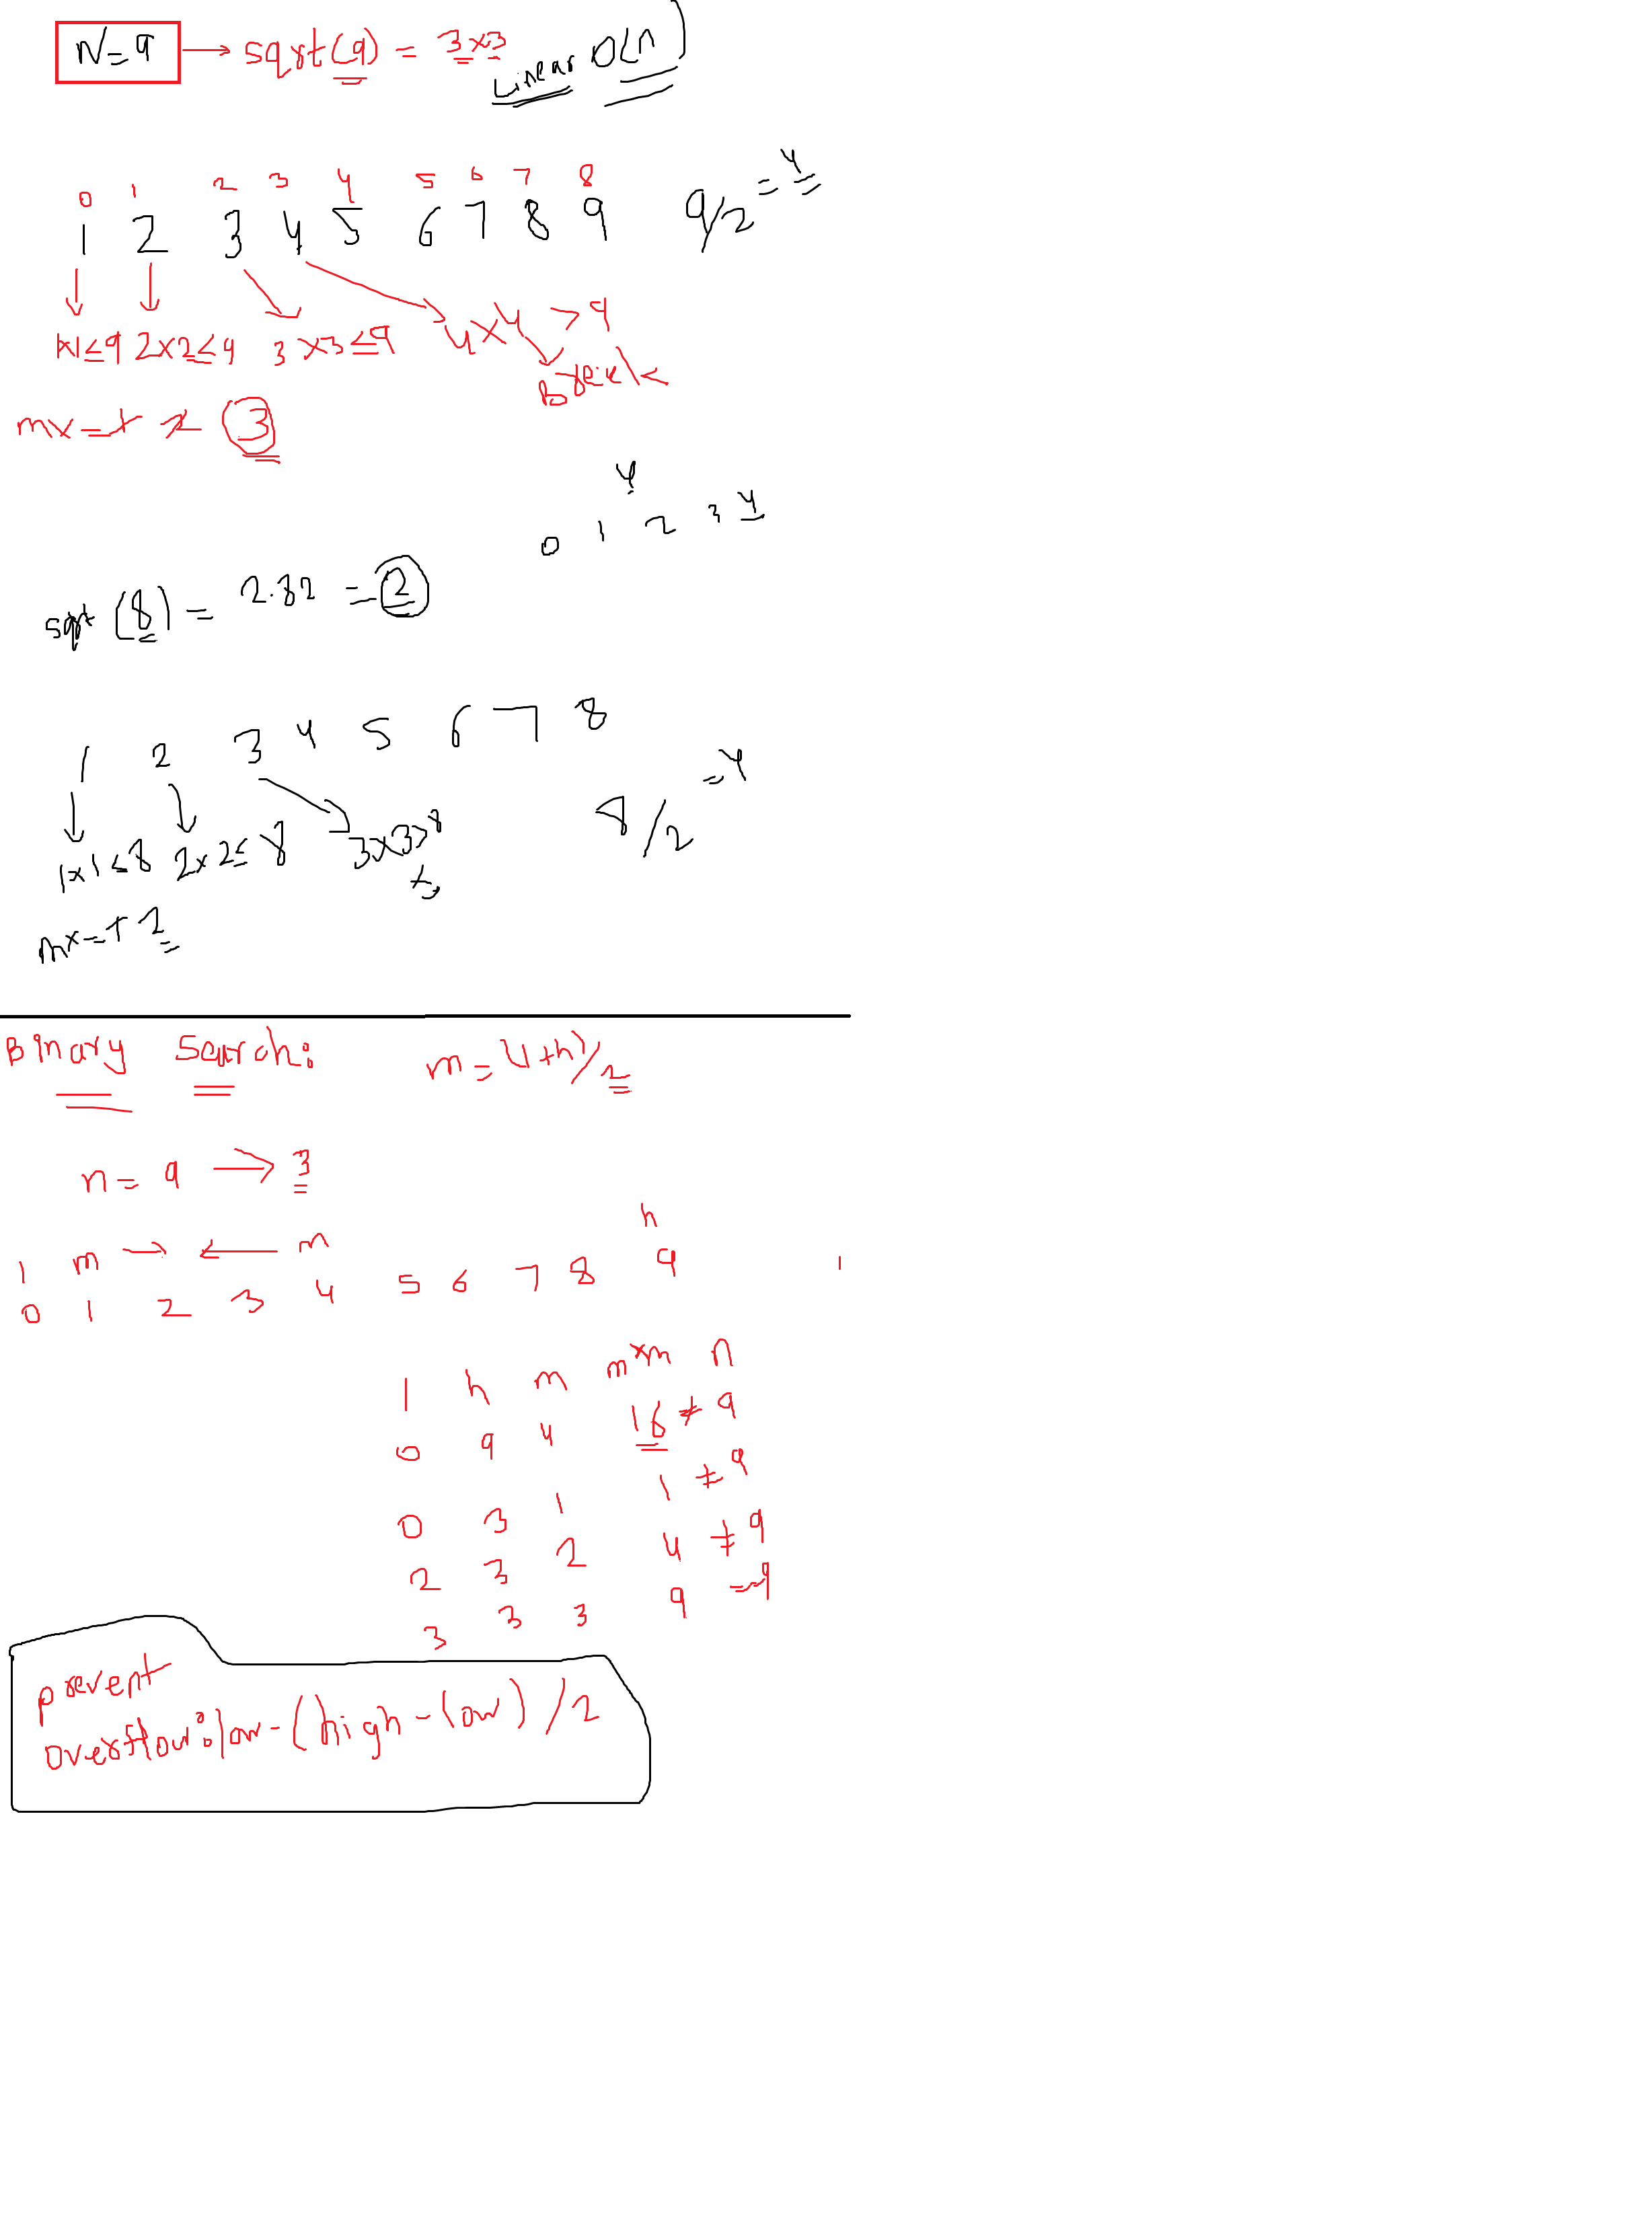 N=9 → sqrt(9) = 3x3
Linear O(n)
0 1 2 3 4 5 6 7 8
1 2 3 4 5 6 7 8 9 9/2 = 4
1x1≤9 2x2≤9 3x3≤9 4x4 >9
Break
mx=1 2 3
4
0 1 2 3 4
sqrt(8) = 2.82 = 2
1 2 3 4 5 6 7 8
8/2 =4
1x1≤8 2x2≤8 3x3>8
mx=1 2
Binary Search: m=(l+h)/2
n=9 → 3
h
l m → ← m
0 1 2 3 4 5 6 7 8 9
l h m m*m n
0 9 4 16 ≠ 9
0 3 1 1 ≠ 9
2 3 2 4 ≠ 9
3 3 3 9 =9
prevent
overflow: low-(high-low)/2